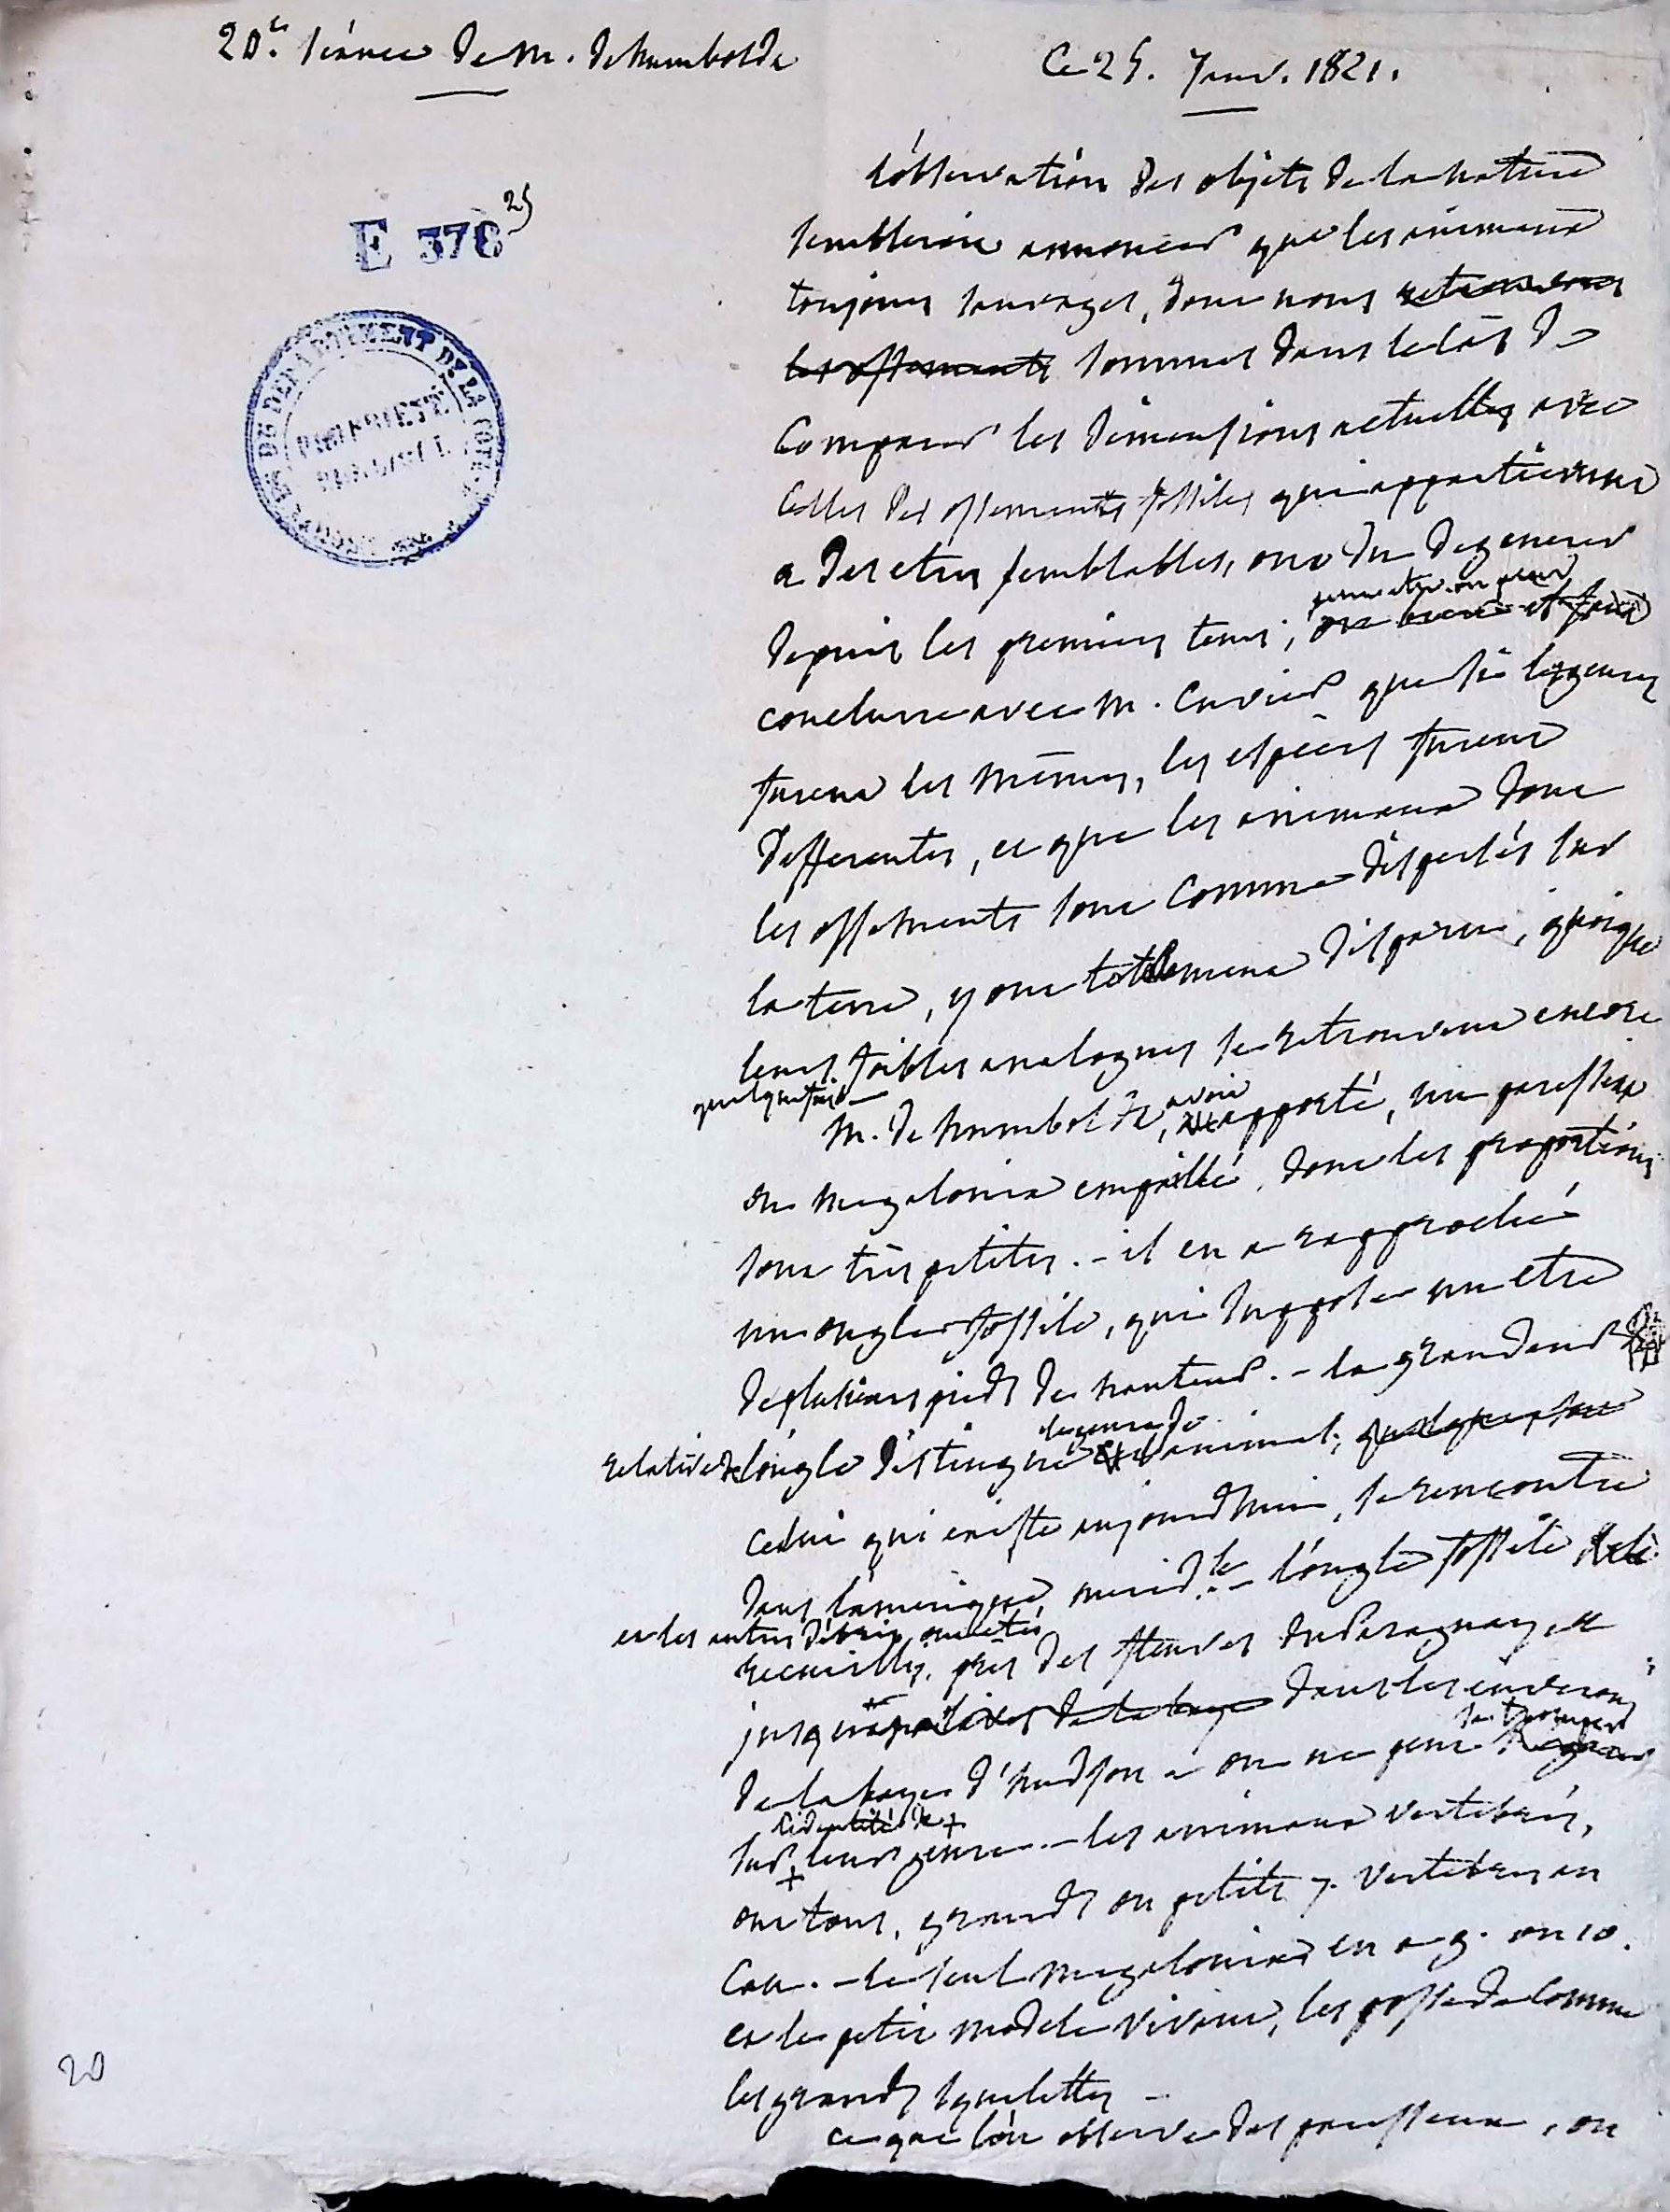 20.e séance de M. de humboldt
Ce 25. Janv. 1821.
E 378 25)
DU DÉPARTEMENT DE LA CÔTE
PROPRIÉTÉ
l'observation des objets de la nature
sembleroit annoncer que les animaux
toujours sauvages, dont nous retrouvons
les ossements sommes dans le cas de
comparer les dimensions actuelles avec
celles des ossements fossiles qui appartiennent
a des etres semblables, ont du degenerer
peut etre on peut
depuis les premiers tems; et faut
conclurre avec M. Cuvier que si les genres
furent les mêmes, les especes furent
differentes, et que les animaux dont
les ossements sont comme dispersés sur
la terre, y ont totalement disparu, quoique
leurs foibles analogues se retrouvent encore
quelquefois
avoit
M. de humboldt, apporté, un paresseux
ou megalonix empaillé, dont les proportions
sont très petites. - il en a rapproché
un ongle fossile, qui suppose un etre
de plusieurs pieds de hauteur. - la grandeur
le genre de
relative de l'ongle distingue l'animal;
celui qui existe aujourdhui, se rencontre
dans l'amerique merid.le - l'ongle fossile
et les autres débris ont étés
recueillis près des fleuves du Paraguay, et
jusqu'a dans les environs
se tromper
de la baye d'hudson - on ne peut
l'identité de +
sur leur genre. - les animaux vertebrés,
+
ont tous, grands ou petits 7. vertebres au
cou. - le seul megalonix en a 9. ou 10.
et le petit modele vivant, les possede comme
les grands squelettes -
ce que l'on observe des paresseux, on
20